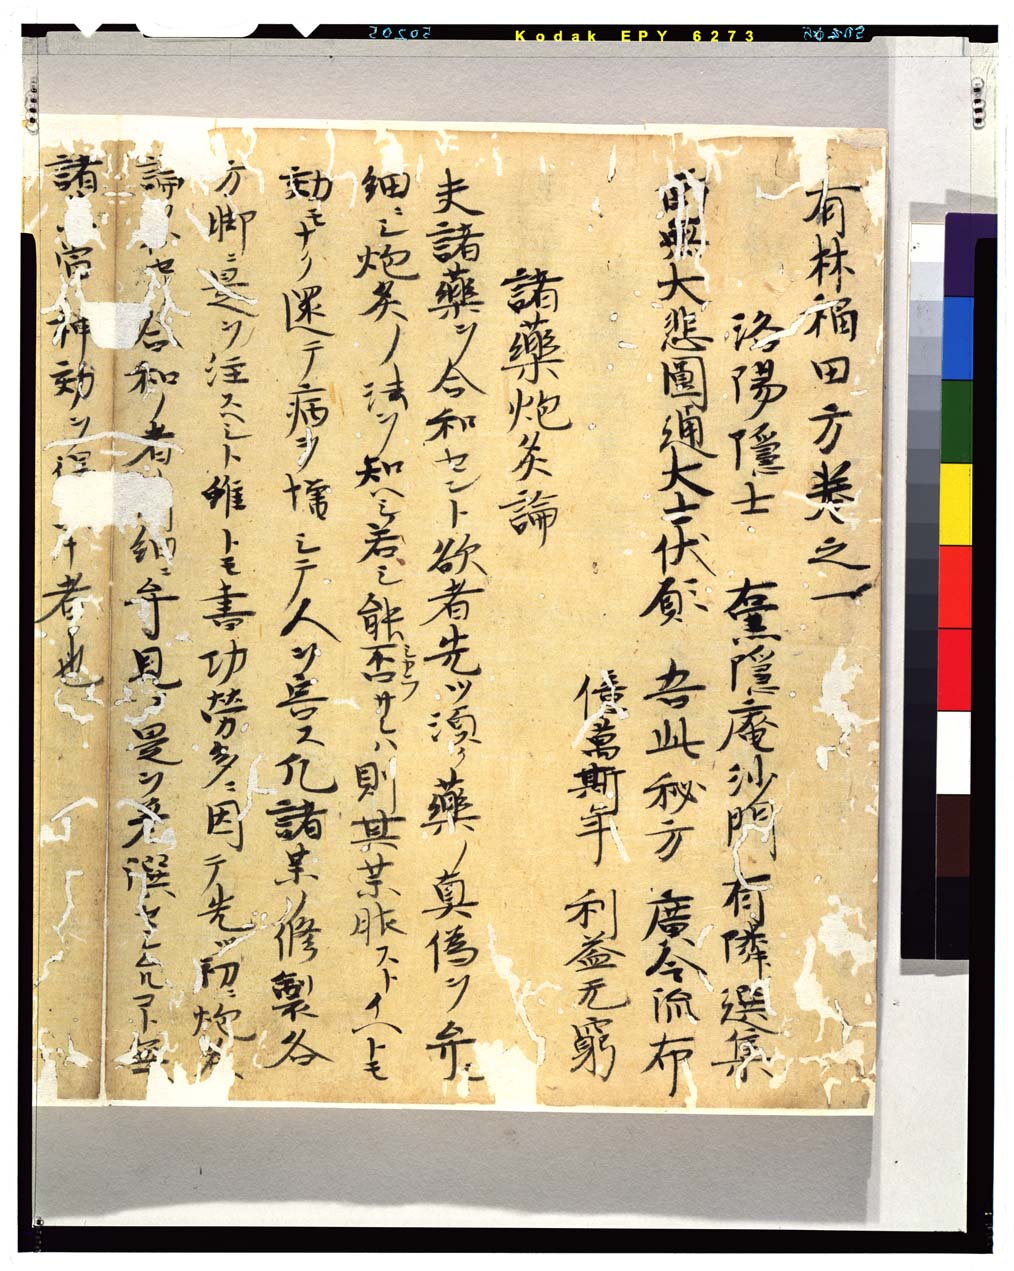 有林福田方巻之一
洛陽隠士 黨隠庵沙門有隣選集
南無大悲圓通大士伏願 吾此秘方 廣令流布
億萬斯年 利益无窮
諸藥炮炙論
夫諸藥ヲ合和セント欲者先ツ須ク藥ノ真偽ヲ弁ニ
細ニシ炮炙ノ法ヲ知ヘシ若シ能否サレハ則其薬服ストイヘトモ
効モナク還テ病ヲ増シテ人ヲ害ス凡諸薬ノ修製各
方ノ脚ニ是ヲ注スヘシト雖トモ書ニ功勞多ニ因テ先ツ初ニ炮炙
論 合和ノ者 細ニ弁見 是ヲ 撰セムルコト無
諸 神効ヲ得 者也
Kodak EPY 6273
50205